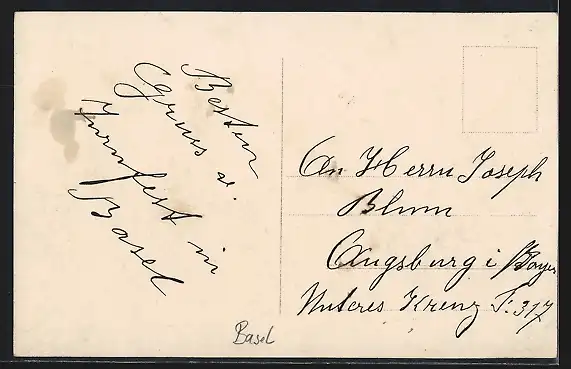 Besten
Gruss v.
Turnfest in
Basel
An Herrn Joseph
Blum
Augsburg i/Bayer
Unteres Kreuz F. 317
Basel